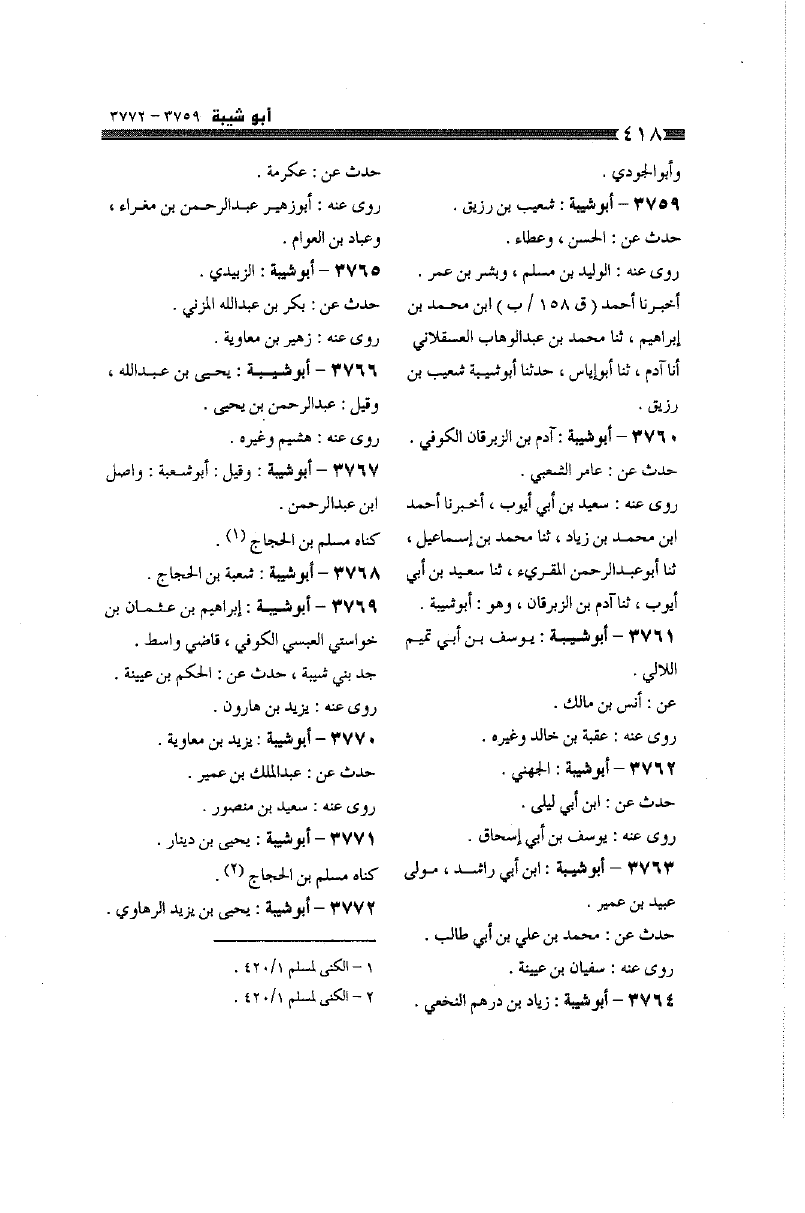 أبو شيبة ٣٧٥٩ - ٣٧٧٢
٤١٨
وأبوالجودي .
٣٧٥٩ - أبوشيبة : شعيب بن رزيق .
حدث عن : الحسن ، وعطاء .
روى عنه : الوليد بن مسلم ، وبشر بن عمر .
أخبرنا أحمد ( ق ١٥٨ / ب ) ابن محمد بن
إبراهيم ، ثنا محمد بن عبدالوهاب العسقلاني
أنا آدم ، ثنا أبوإياس ، حدثنا أبوشيبة شعيب بن
رزيق .
٣٧٦٠ - أبوشيبة : آدم بن الزبرقان الكوفي .
حدث عن : عامر الشعبي .
روى عنه : سعيد بن أبي أيوب ، أخبرنا أحمد
ابن محمد بن زياد ، ثنا محمد بن إسماعيل ،
ثنا أبوعبدالرحمن المقريء ، ثنا سعيد بن أبي
أيوب ، ثنا آدم بن الزبرقان ، وهو : أبوشيبة .
٣٧٦١ - أبوشيبة : يوسف بن أبي تميم
اللالي .
عن : أنس بن مالك .
روى عنه : عقبة بن خالد وغيره .
٣٧٦٢ - أبوشيبة : الجهني .
حدث عن : ابن أبي ليلى .
روى عنه : يوسف بن أبي إسحاق .
٣٧٦٣ - أبوشيبة : ابن أبي راشد ، مولى
عبيد بن عمير .
حدث عن : محمد بن علي بن أبي طالب .
روى عنه : سفيان بن عيينة .
٣٧٦٤ - أبوشيبة : زياد بن درهم النخعي .
حدث عن : عكرمة .
روى عنه : أبوزهير عبدالرحمن بن مغراء ،
وعباد بن العوام .
٣٧٦٥ - أبوشيبة : الزبيدي .
حدث عن : بكر بن عبدالله المزني .
روى عنه : زهير بن معاوية .
٣٧٦٦ - أبوشيبة : يحيى بن عبدالله ،
وقيل : عبدالرحمن بن يحيى .
روى عنه : هشيم وغيره .
٣٧٦٧ - أبوشيبة : وقيل : أبوشعبة : واصل
ابن عبدالرحمن .
كناه مسلم بن الحجاج (١) .
٣٧٦٨ - أبوشيبة : شعبة بن الحجاج .
٣٧٦٩ - أبوشيبة : إبراهيم بن عثمان بن
خواستي العبسي الكوفي ، قاضي واسط .
جد بني شيبة ، حدث عن : الحكم بن عيينة .
روى عنه : يزيد بن هارون .
٣٧٧٠ - أبوشيبة : يزيد بن معاوية .
حدث عن : عبدالملك بن عمير .
روى عنه : سعيد بن منصور .
٣٧٧١ - أبوشيبة : يحيى بن دينار .
كناه مسلم بن الحجاج (٢) .
٣٧٧٢ - أبوشيبة : يحيى بن يزيد الرهاوي .
١ - الكنى لمسلم ٤٢٠/١ .
٢ - الكنى لمسلم ٤٢٠/١ .